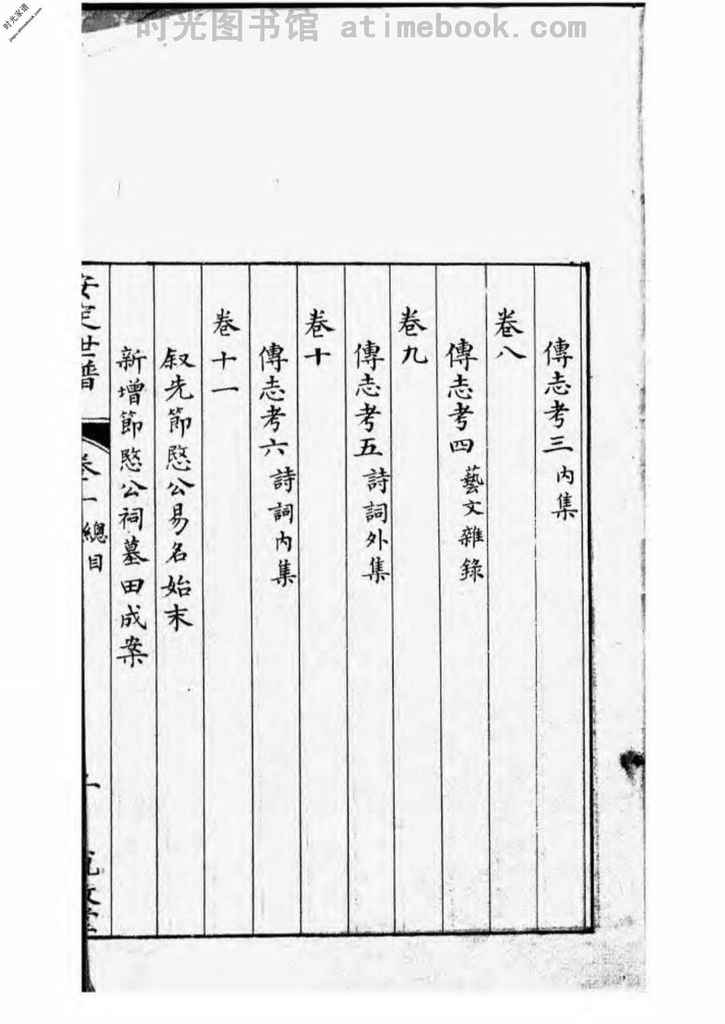 时光图书馆 atimebook.com
时光家谱
傳志考三 内集
卷八
傳志考四 藝文雜錄
卷九
傳志考五 詩詞外集
卷十
傳志考六 詩詞内集
卷十一
叙先節愍公易名始末
新增節愍公祠墓田成案
安定世譜 卷一 總目